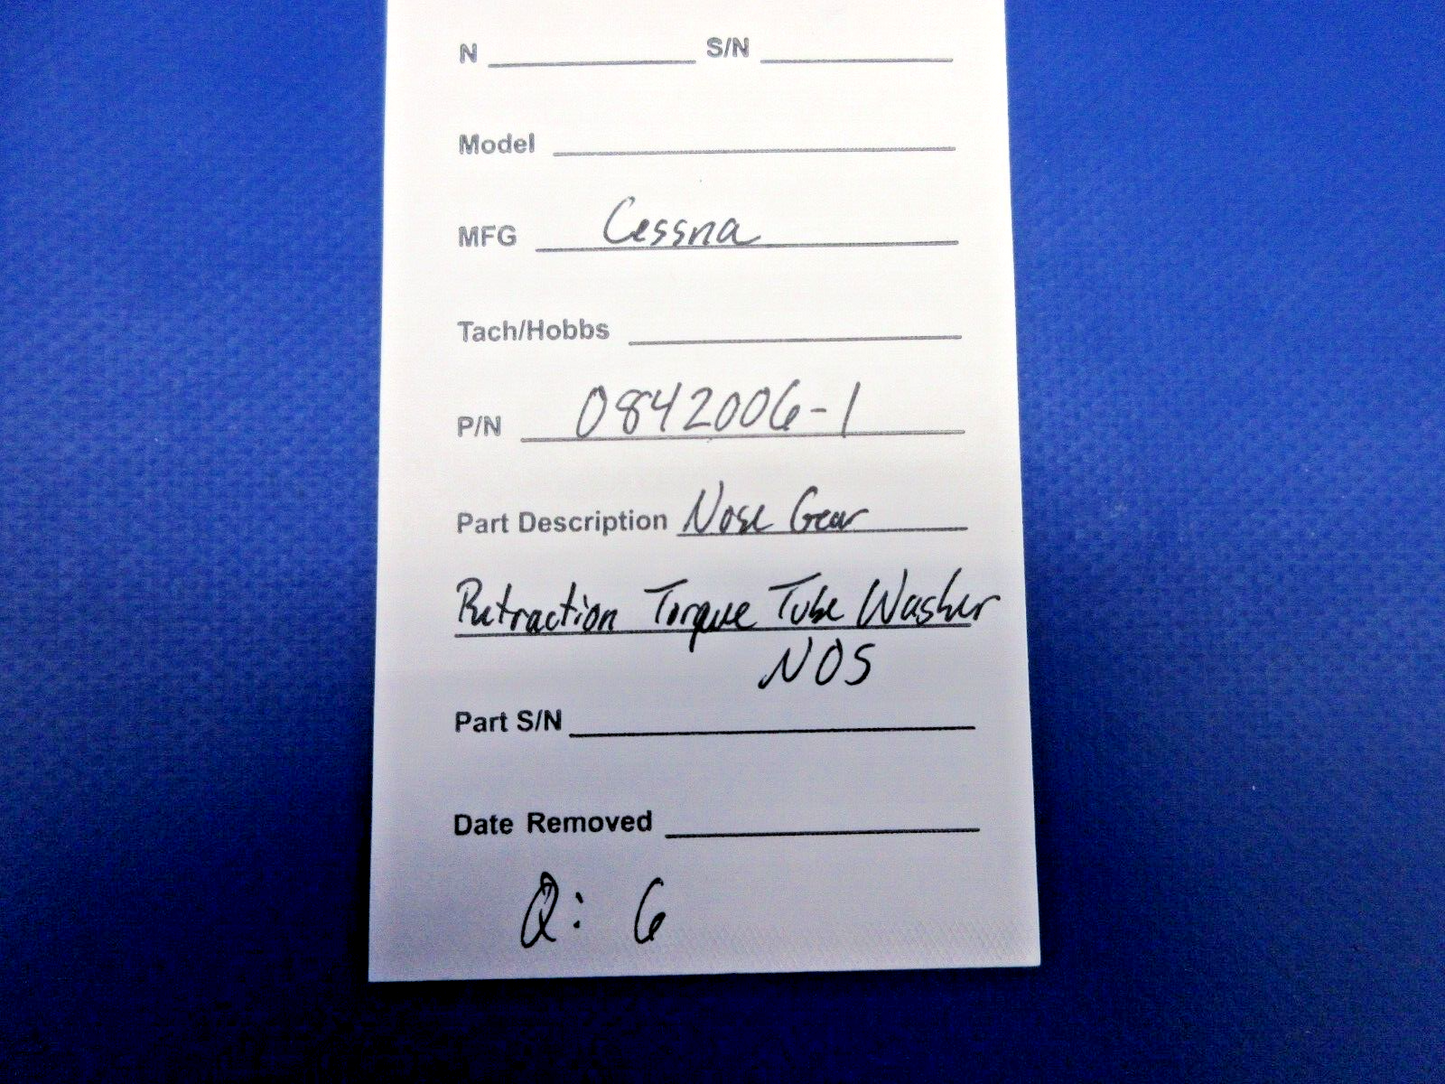 N S/N
Model
MFG Cessna
Tach/Hobbs
P/N 0842006-1
Part Description Nose Gear
Retraction Torque Tube Washer
NOS
Part S/N
Date Removed
Q: 6